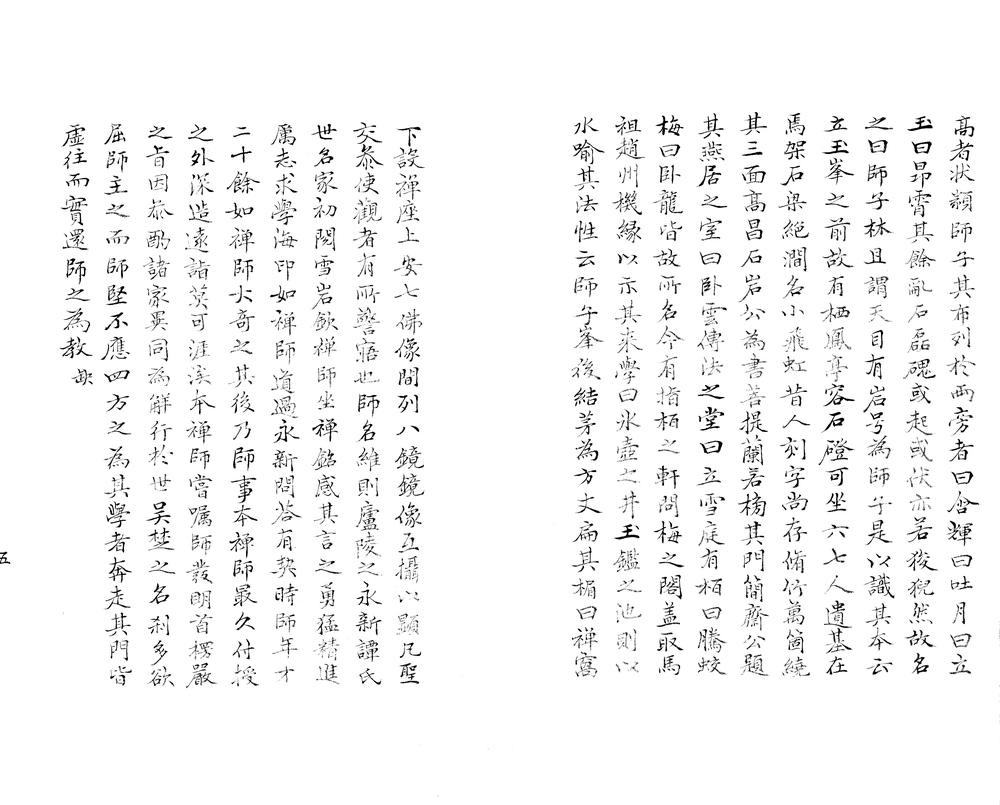 高者状類師子其布列於兩旁者曰含輝曰吐月曰立
玉曰昂霄其餘亂石磊磈或起或伏亦若狻猊然故名
之曰師子林且謂天目有岩号為師子是以識其本云
立玉峯之前故有栖鳳亭容石磴可坐六七人遺基在
焉架石梁絶澗名小飛虹昔人刻字尚存脩竹萬箇繞
其三面髙昌石岩公為書菩提蘭若榜其門簡齋公題
其燕居之室曰卧雲傳法之堂曰立雪庭有栢曰騰蛟
梅曰卧龍皆故所名今有指栢之軒問梅之閣盖取馬
祖趙州機縁以示其來學曰氷壺之井玉鑑之池則以
水喻其法性云師子峯後結茅為方丈扁其楣曰禅窩
下設禅座上安七佛像間列八鏡鏡像互攝以顯凡聖
交叅使觀者有所警寤也師名維則廬陵之永新譚氏
世名家初閲雪岩欽禅師坐禅銘感其言之勇猛精進
厲志求學海印如禅師道過永新問荅有契時師年才
二十餘如禅師大奇之其後乃師事本禅師最久付授
之外深造遠詣莫可涯涘本禅師嘗嘱師發明首楞嚴
之旨因叅酌諸家異同為解行於世吴楚之名刹多欲
屈師主之而師堅不應四方之為其學者奔走其門皆
虚往而實還師之為教
五